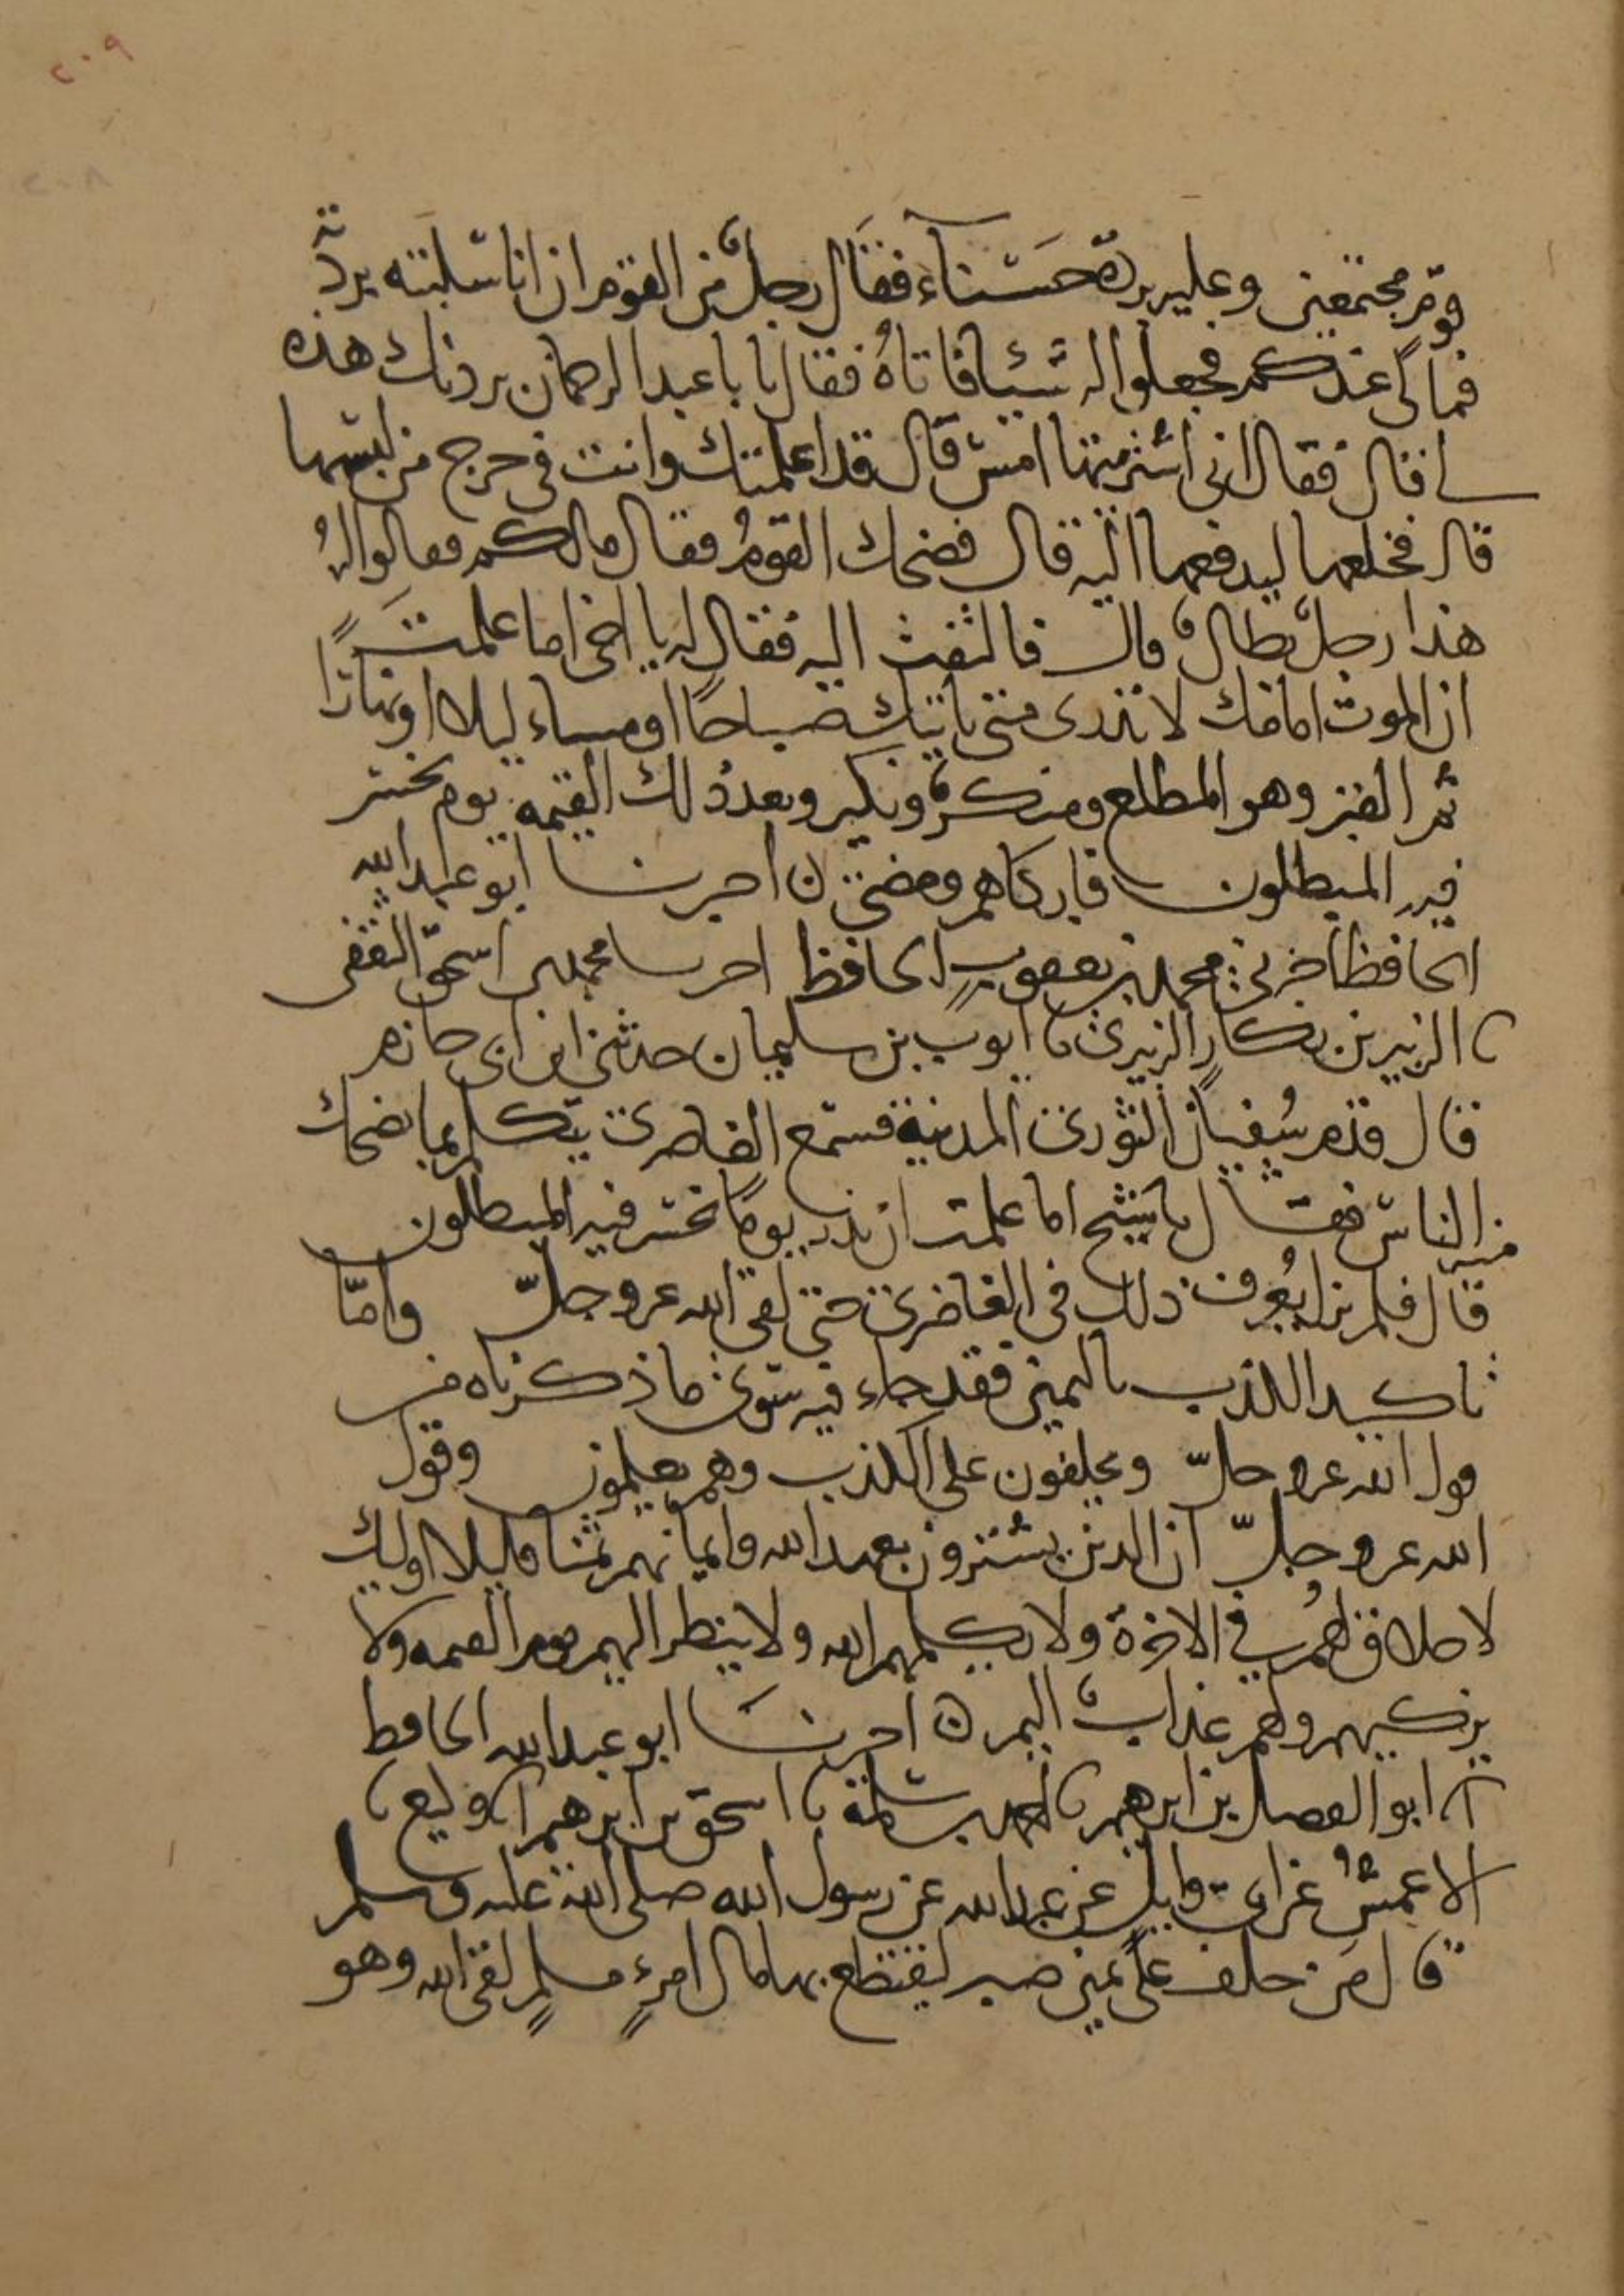 ٢٠٩
قوم مجتمعين وعليه بردة حسناء فقال رجل من القوم ان انا سلبته بردته
فمالي عندكم فجعلوا له شيئا فاتاه فقال يا با عبد الرحمان بردتك هذه
لي قال فقال اني اشتريتها امس قال قد اعلمتك وانت في حرج من لبسها
قال فخلعها ليدفعها اليه قال فضحك القوم فقال مالكم فقالوا له
هذا رجل بطال قال فالتفت اليه فقال له يا اخي اما علمت
ان الموت امامك لا تدري متى ياتيك صباحا او مساء ليلا او نهارا
ثم القبر وهو المطلع ومنكر ونكير وبعد ذلك القيمه يوم يخسر
فيه المبطلون فابكاهم ومضى ن اخبرنا ابو عبد الله
الحافظ اخبرني محمد بن يعقوب الحافظ اخبرنا محمد بن اسحق الثقفي
نا الزبير بن بكار الزبيري نا ايوب بن سليمان حدثني ابن ابي حازم
قال قدم سفيان الثوري المدينة فسمع الغاضري يتكلم بما يضحك
منه الناس فقال يا شيخ اما علمت ان لله يوما يخسر فيه المبطلون
قال فلم يزل يعرف ذلك في الغاضري حتى لقي الله عز وجل واما
تاكيد الكذب باليمين فقد جاء فيه سوى ما ذكرناه من
قول الله عز وجل ويحلفون على الكذب وهم يعلمون وقول
الله عز وجل ان الذين يشترون بعهد الله وايمانهم ثمنا قليلا اوليك
لا خلاق لهم في الاخرة ولا يكلمهم الله ولا ينظر اليهم يوم القيمه ولا
يزكيهم ولهم عذاب اليم ن اخبرنا ابو عبد الله الحافظ
انا ابو الفضل بن ابرهيم نا احمد بن سلمة نا اسحق بن ابرهيم انا وكيع نا
الاعمش عن ابي وايل عن عبد الله عن رسول الله صلى الله عليه وسلم
قال من حلف على يمين صبر ليقتطع بها مال امرئ مسلم لقي الله وهو